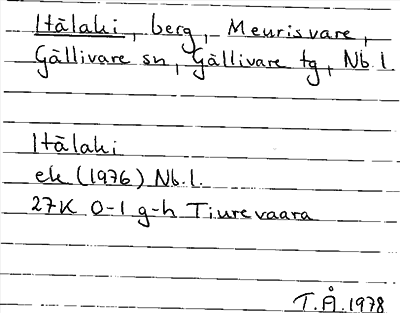 Itälaki, berg, Meurisvare,
Gällivare sn, Gällivare tg, Nb.l.
Itälaki
ek (1976) Nb.l.
27K 0-1 g-h Tiurevaara
T.Å.1978